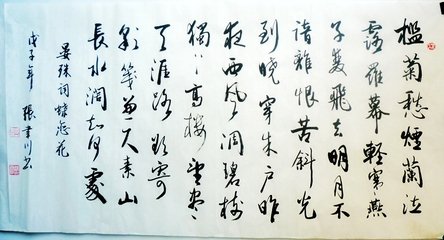 檻菊愁煙蘭泣
露羅幕輕寒燕
子雙飛去明月不
諳離恨苦斜光
到曉穿朱户昨
夜西風凋碧樹
獨上高樓望尽
天涯路欲寄
彩箋兼尺素山
長水濶知何處
晏殊词蝶恋花
戊子年 張